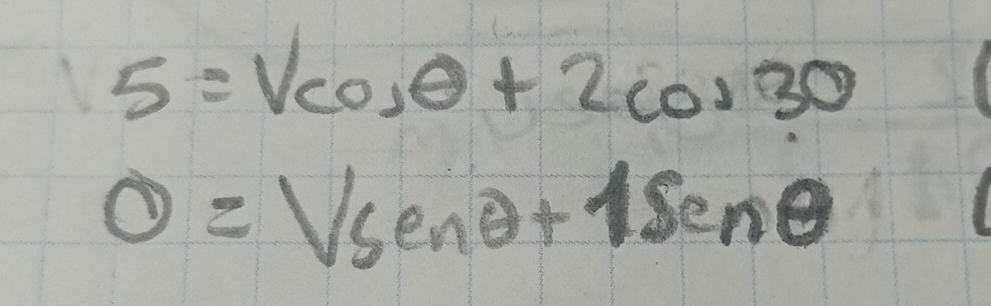 5 = Vcosθ + 2cos 30
0 = Vsenθ + 1senθ